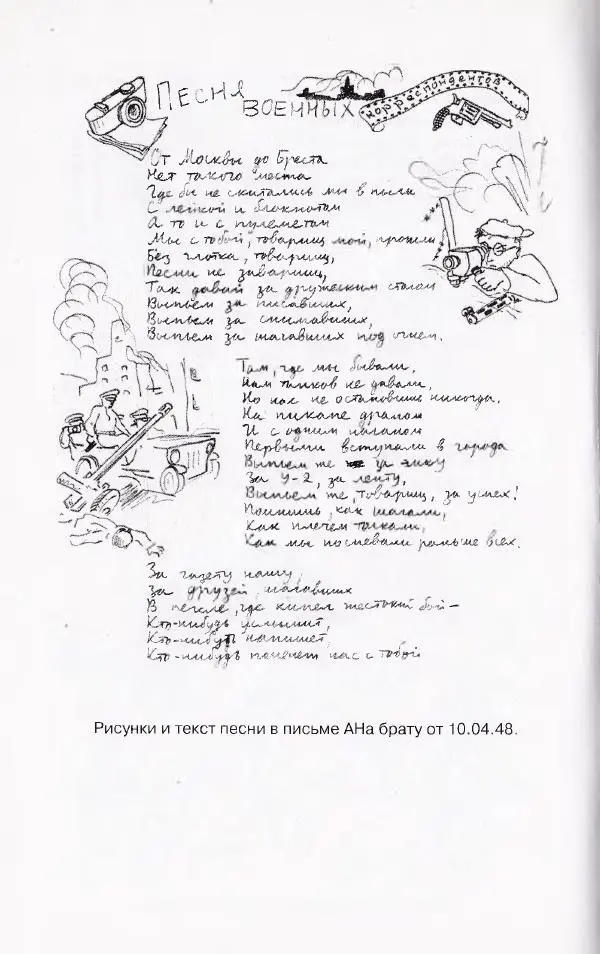 Песня
военных
корреспондентов
От Москвы до Бреста
Нет такого места
Где бы не скитались мы в пыли
С лейкой и блокнотом
А то и с пулеметом
Мы с тобой, товарищ мой, прошли
Без глотка, товарищ,
Песни не заваришь,
Так давай за дружеским столом
Выпьем за писавших,
Выпьем за снимавших,
Выпьем за шагавших под огнем.
Там, где мы бывали,
Нам танков не давали,
Но нас не остановишь никогда.
На пикапе драном
И с одним наганом
Первыми вступали в города
Выпьем же за
За У-2, за ленту,
Выпьем же, товарищ, за успех!
Помнишь, как шагали,
Как плечем толкали,
Как мы поспевали раньше всех.
За газету нашу,
За друзей, шагавших
В пекле, где кипел жестокий бой –
Кто-нибудь услышит,
Кто-нибудь напишет,
Кто-нибудь помянет нас с тобой
Рисунки и текст песни в письме АНа брату от 10.04.48.